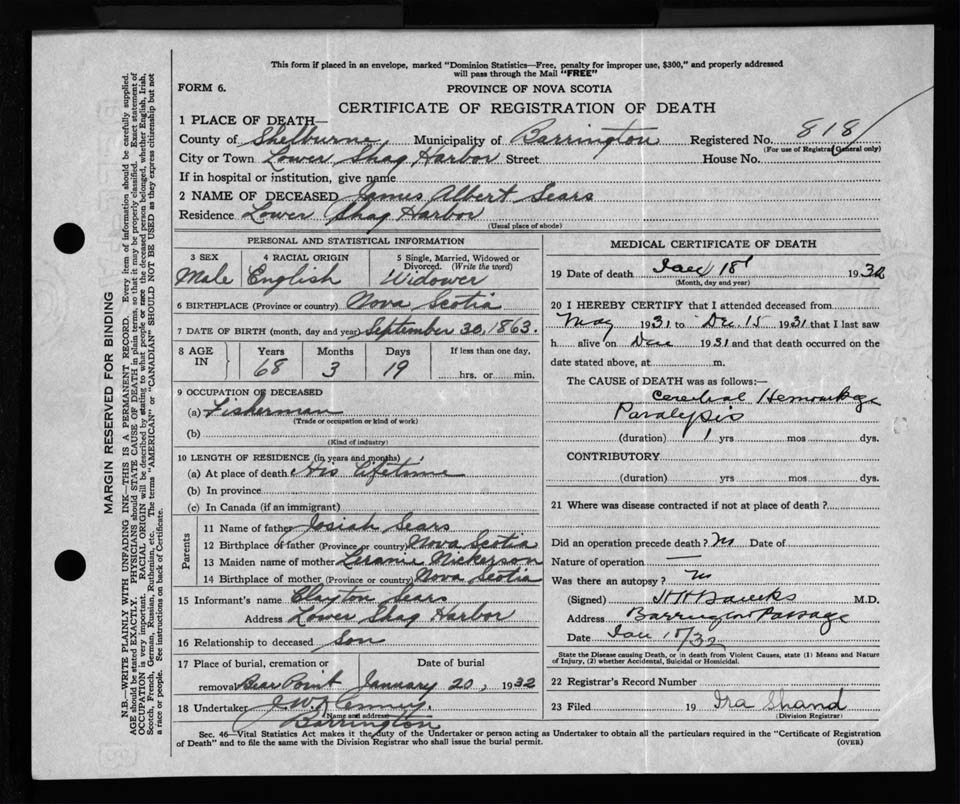 This form if placed in an envelope, marked "Dominion Statistics—Free, penalty for improper use, $300," and properly addressed
will pass through the Mail "FREE"
FORM 6.
PROVINCE OF NOVA SCOTIA
CERTIFICATE OF REGISTRATION OF DEATH
1 PLACE OF DEATH—
County of Shelburne Municipality of Barrington Registered No. 818
(For use of Registrar General only)
City or Town Lower Shag Harbor Street House No.
If in hospital or institution, give name
2 NAME OF DECEASED James Albert Sears
Residence Lower Shag Harbor
(Usual place of abode)
PERSONAL AND STATISTICAL INFORMATION
3 SEX 4 RACIAL ORIGIN 5 Single, Married, Widowed or
Divorced. (Write the word)
Male English Widower
6 BIRTHPLACE (Province or country) Nova Scotia
7 DATE OF BIRTH (month, day and year) September 30, 1863.
8 AGE IN Years Months Days If less than one day,
68 3 19 hrs. or min.
9 OCCUPATION OF DECEASED
(a) Fisherman
(Trade or occupation or kind of work)
(b)
(Kind of industry)
10 LENGTH OF RESIDENCE (in years and months)
(a) At place of death His Lifetime
(b) In province
(c) In Canada (if an immigrant)
Parents
11 Name of father Josiah Sears
12 Birthplace of father (Province or country) Nova Scotia
13 Maiden name of mother Nickerson
14 Birthplace of mother (Province or country) Nova Scotia
15 Informant's name Clayton Sears
Address Lower Shag Harbor
16 Relationship to deceased Son
17 Place of burial, cremation or Date of burial
removal Bear Point January 20, 1932
18 Undertaker J. W.
(Name and address)
Barrington
MEDICAL CERTIFICATE OF DEATH
19 Date of death Jan 18 1932
(Month, day and year)
20 I HEREBY CERTIFY that I attended deceased from
May 1931 to Dec. 15 1931 that I last saw
h alive on Dec 1931 and that death occurred on the
date stated above, at m.
The CAUSE of DEATH was as follows:—
Cerebral Hemorrhage
Paralysis
(duration) 1 yrs mos dys.
CONTRIBUTORY
(duration) yrs. mos. dys.
21 Where was disease contracted if not at place of death?
Did an operation precede death? No Date of
Nature of operation —
Was there an autopsy? No
(Signed) M.D.
Address Barrington Passage
Date Jan /32
State the Disease causing Death, or in death from Violent Causes, state (1) Means and Nature
of Injury, (2) whether Accidental, Suicidal or Homicidal.
22 Registrar's Record Number
23 Filed 19 Ira Shand
(Division Registrar)
Sec. 46—Vital Statistics Act makes it the duty of the Undertaker or person acting as Undertaker to obtain all the particulars required in the "Certificate of Registration
of Death" and to file the same with the Division Registrar who shall issue the burial permit.
(OVER)
MARGIN RESERVED FOR BINDING
N.B.—WRITE PLAINLY WITH UNFADING INK—THIS IS A PERMANENT RECORD. Every item of information should be carefully supplied.
AGE should be stated EXACTLY. PHYSICIANS should STATE CAUSE OF DEATH in plain terms, so that it may be properly classified. Exact statement of
OCCUPATION is very important. RACIAL ORIGIN will be described by stating to what people or race the deceased person belonged, whether English, Irish,
Scotch, French, German, Russian, Ruthenian, etc. The terms "AMERICAN" or "CANADIAN" SHOULD NOT BE USED as they express citizenship but not
a race or people. See instructions on back of Certificate.